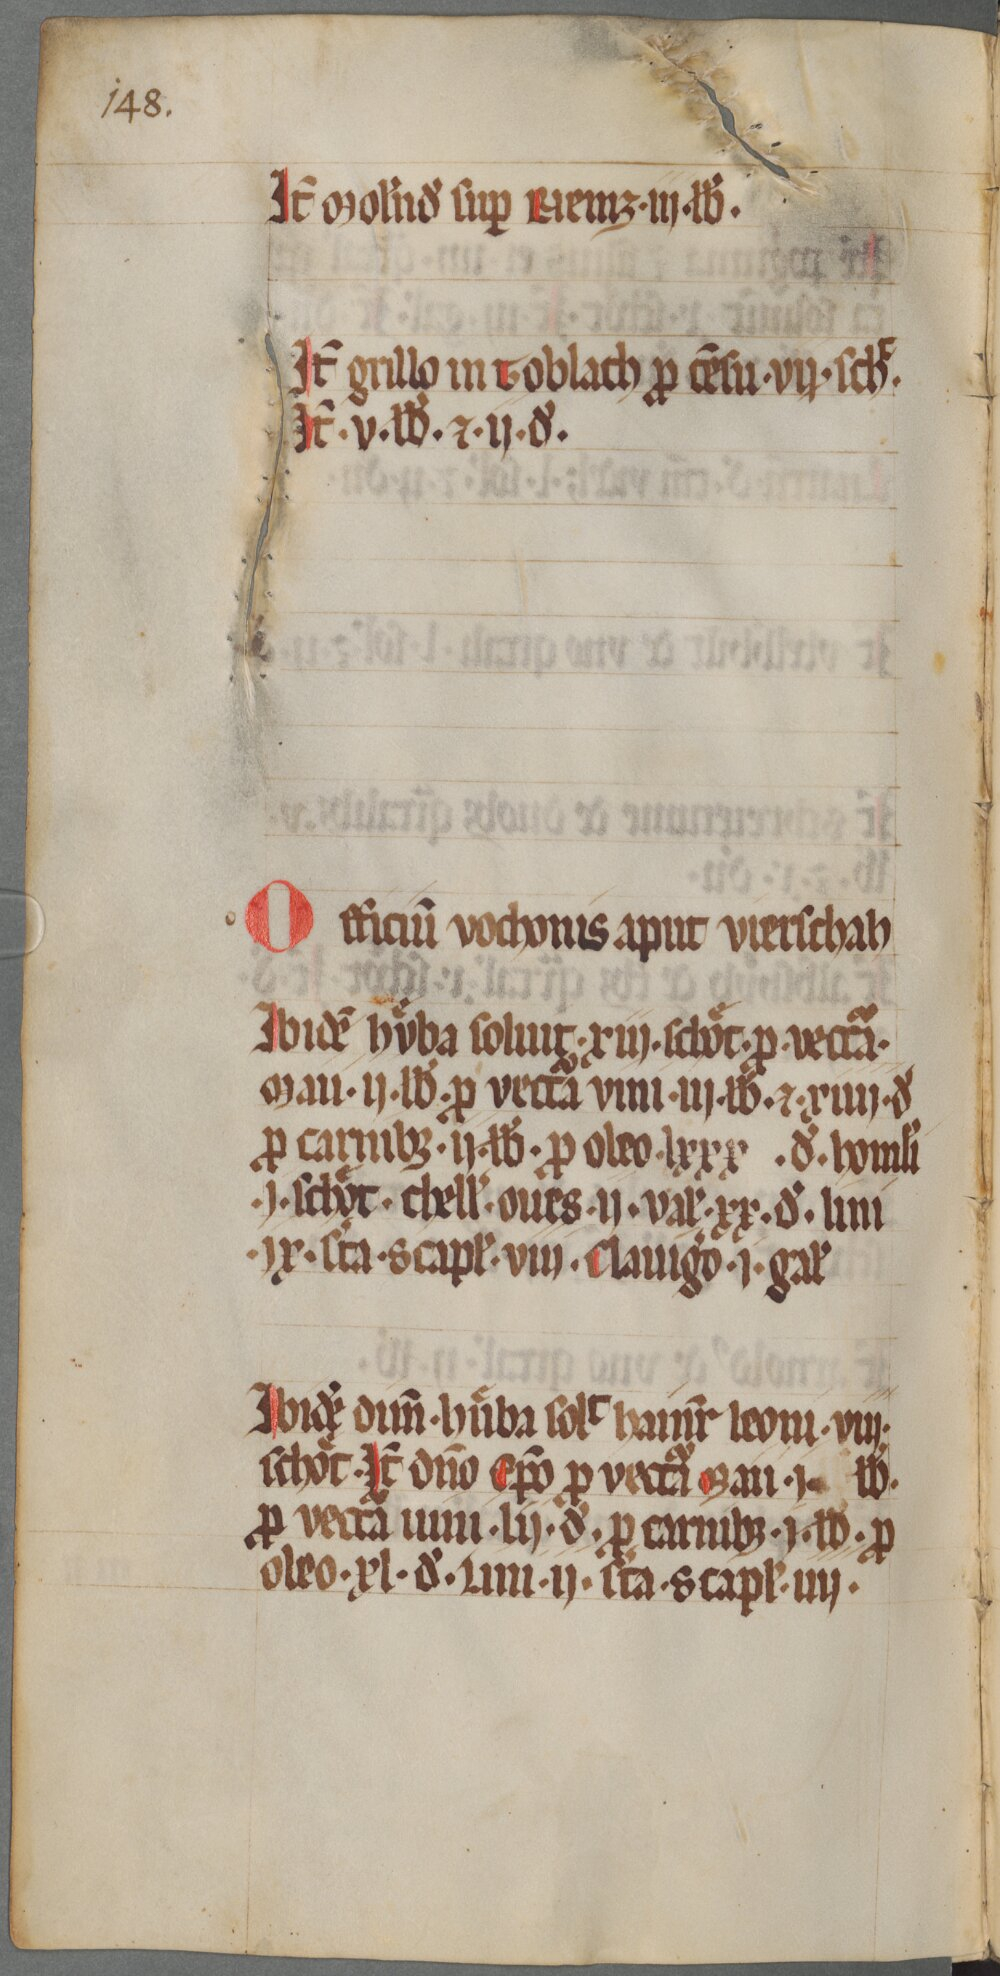 148.
It̄ Molnd' sup Rienz·iij·lb̄.
It̄ grillo in toblach p cēsu·vij·sch̄.
It̄·v·lb̄·⁊·ij·d'.
Officiū vochonis aput vierschah
Ibidē hůba soluit·xiij·schöt·p·vectā·
Maii·ij·lb̄·p vectā vini·iij·lb̄·⁊·xiiij·d'
p carnibꝫ·ij·lb̄·p oleo·lxxx ·d'·homli
·j·schöt·chell'·oues·ij·val'·xx·d'·lini
·ix·sc̄a·scapl'·viij·Clauig'o·j·gal'
Ibidē dim̄·hůba solt hainr̄ leoni·viij·
schöt·It̄ dn̄o ep̄o p vectā Maii·j· lb̄·
p vectā uini·lij·d'·p carnibꝫ·j·lb̄·p
oleo·xl·d'·Lini·ij·sc̄a·scapl'·iiij·